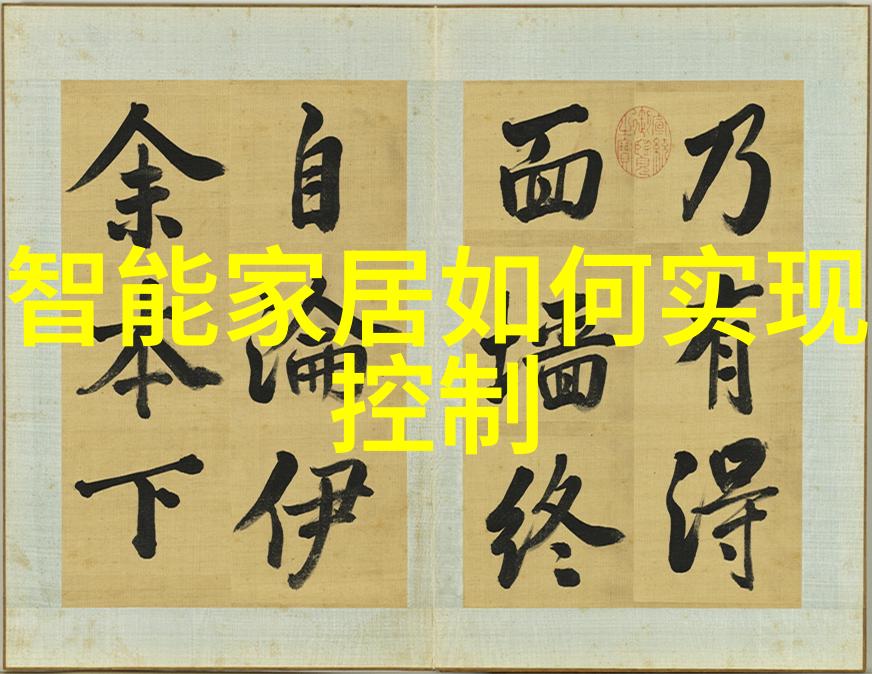 智能家居如何实现
控制
乃有得
面墻終
自淪伊
余本下